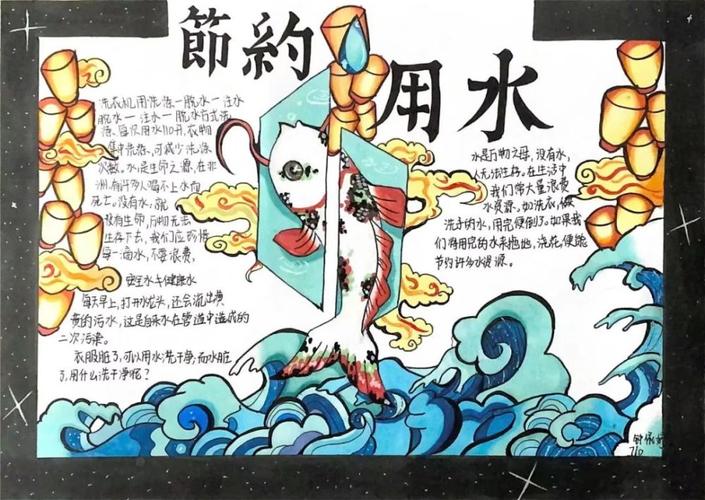 節約
用水
洗衣机用洗涤一脱水一注水
脱水一注水一脱水方式洗
涤,每次用水110升,衣物
集中洗涤,可减少洗涤
次数。水是生命之源,在非
洲,有许多人喝不上水而
死亡。没有水,就
没有生命,万物无法
生存下去,我们应珍惜
每一滴水,不要浪费。
安全水与健康水
每天早上,打开水龙头,还会流出橫
黄的污水,这是自来水在管道中造成的
二次污染。
衣服脏了,可以用水洗干净,而水脏
了,用什么洗干净呢?
水是万物之母,没有水,
人无法生存。在生活中
我们常大量浪费
水资源。如洗衣、
洗手的水,用完便倒了。如果我
们将用完的水来拖地,浇花,便能
节约许多水资源。